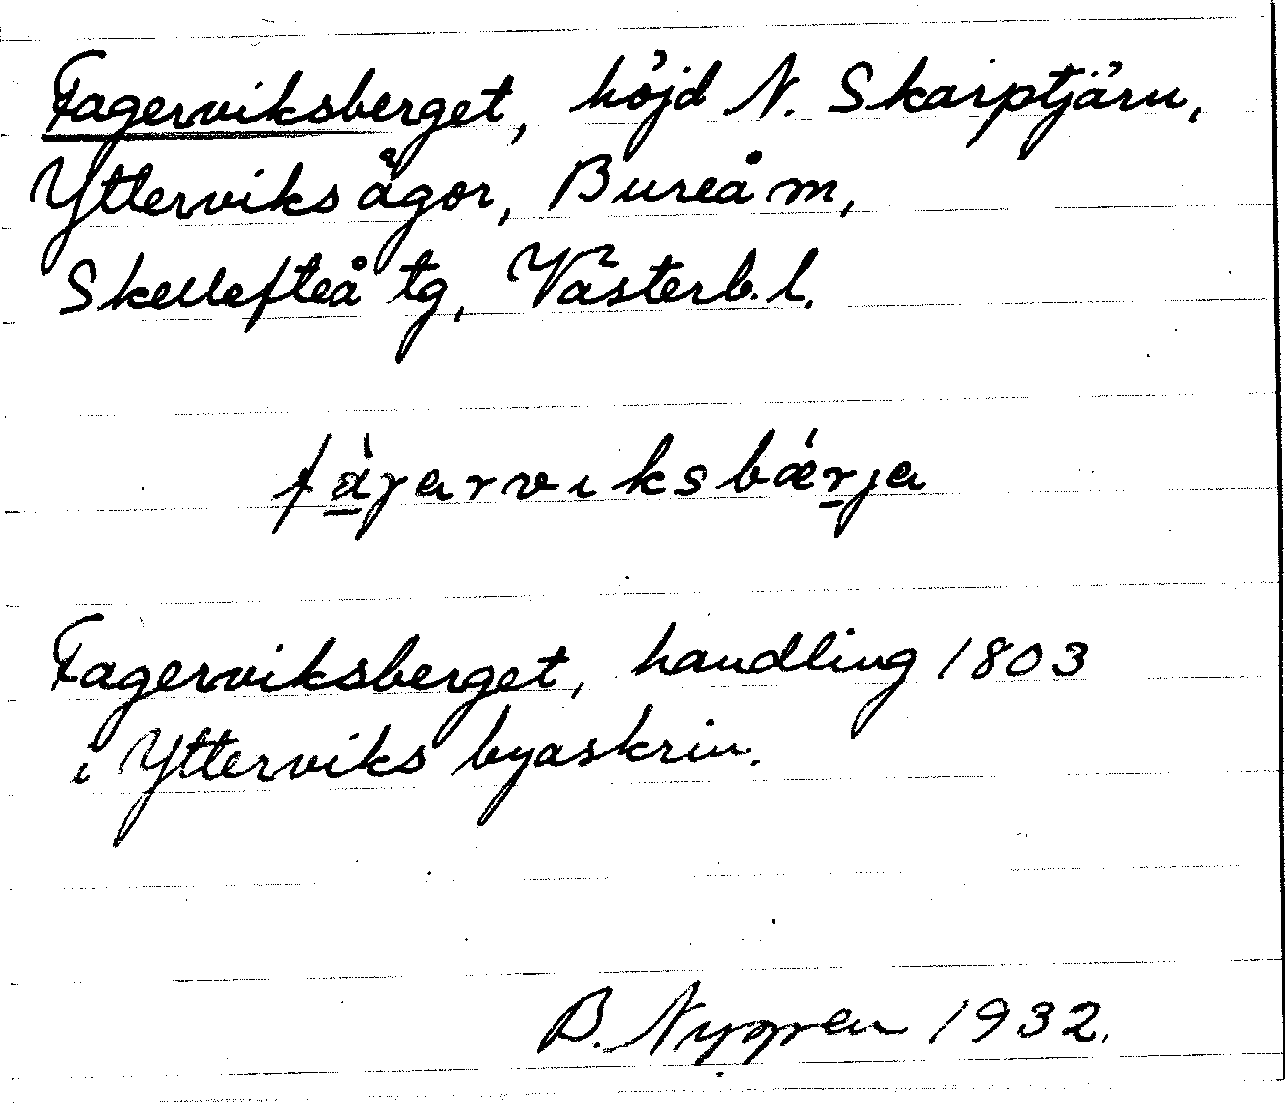 Fagerviksberget, höjd N. Skarptjärn,
Ytterviks ägor, Bureå m,
Skellefteå tg, Västerb. l.
fàɣarviksbǽrja
Fagerviksberget, handling 1803
i Ytterviks byaskrin.
B. Nygren 1932.